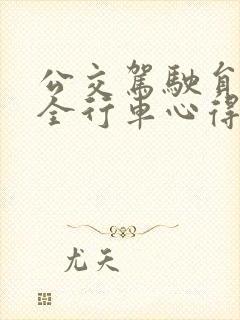 公交駕駛員
全行車心得
尤天